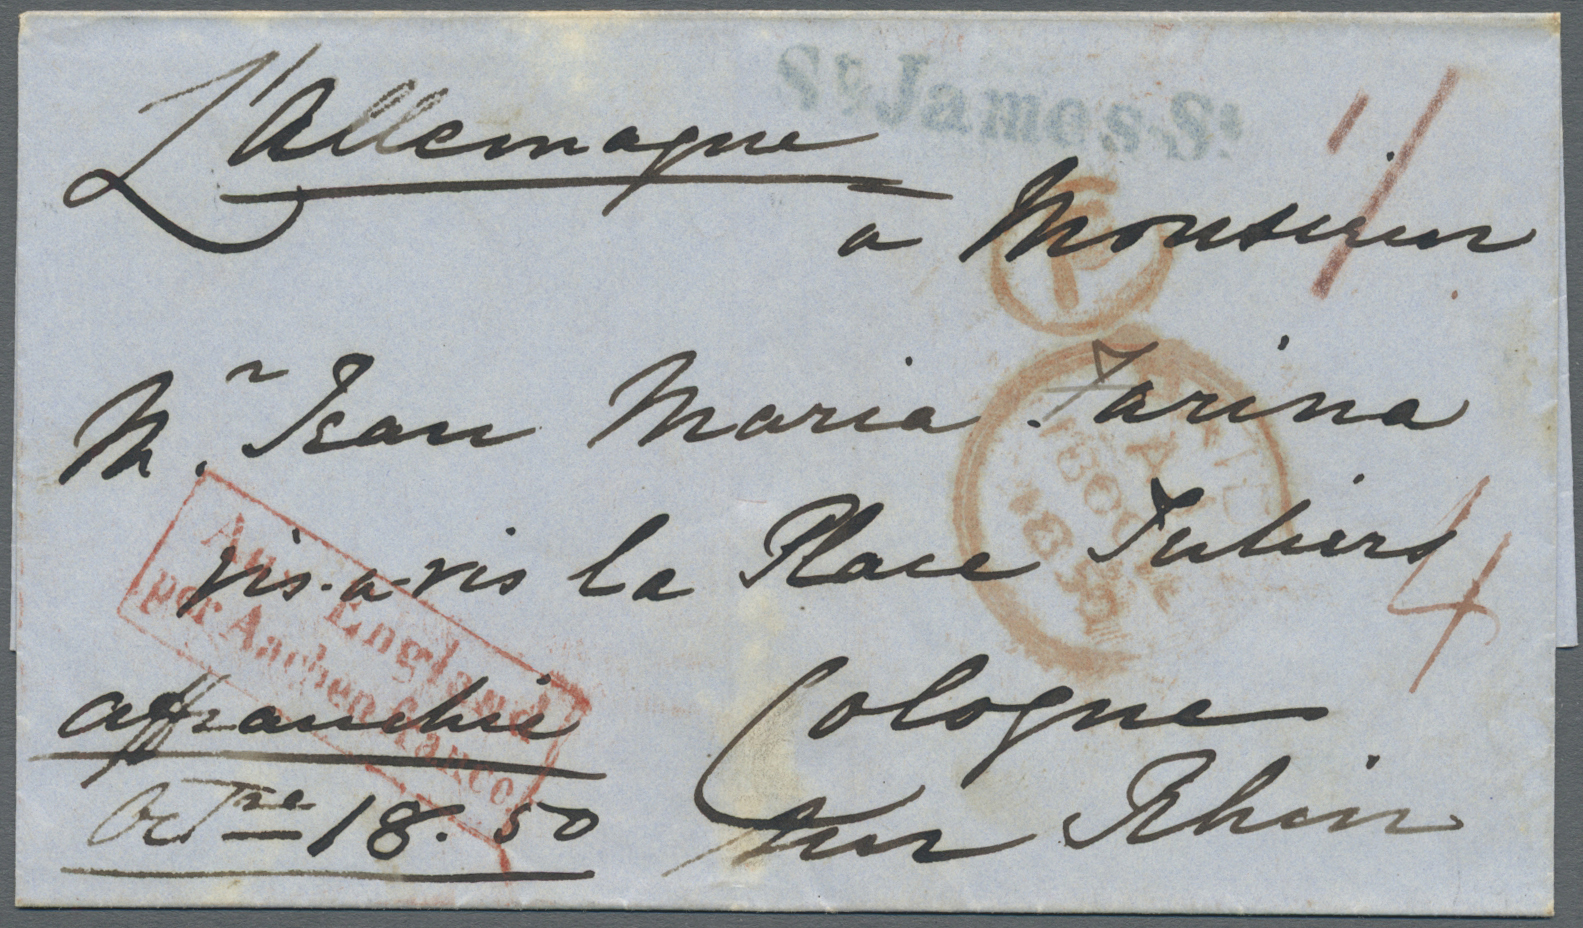 L'Allemagne
St James St
1/
à Monsieur
P
Mr. Jean Maria Farina
PAID
18 OC 18
1850
vis-a-vis la Place Juliers
4
Aus England
per Aachen franco.
affranchie
Cologne
Octre 18. 50
sur Rhin